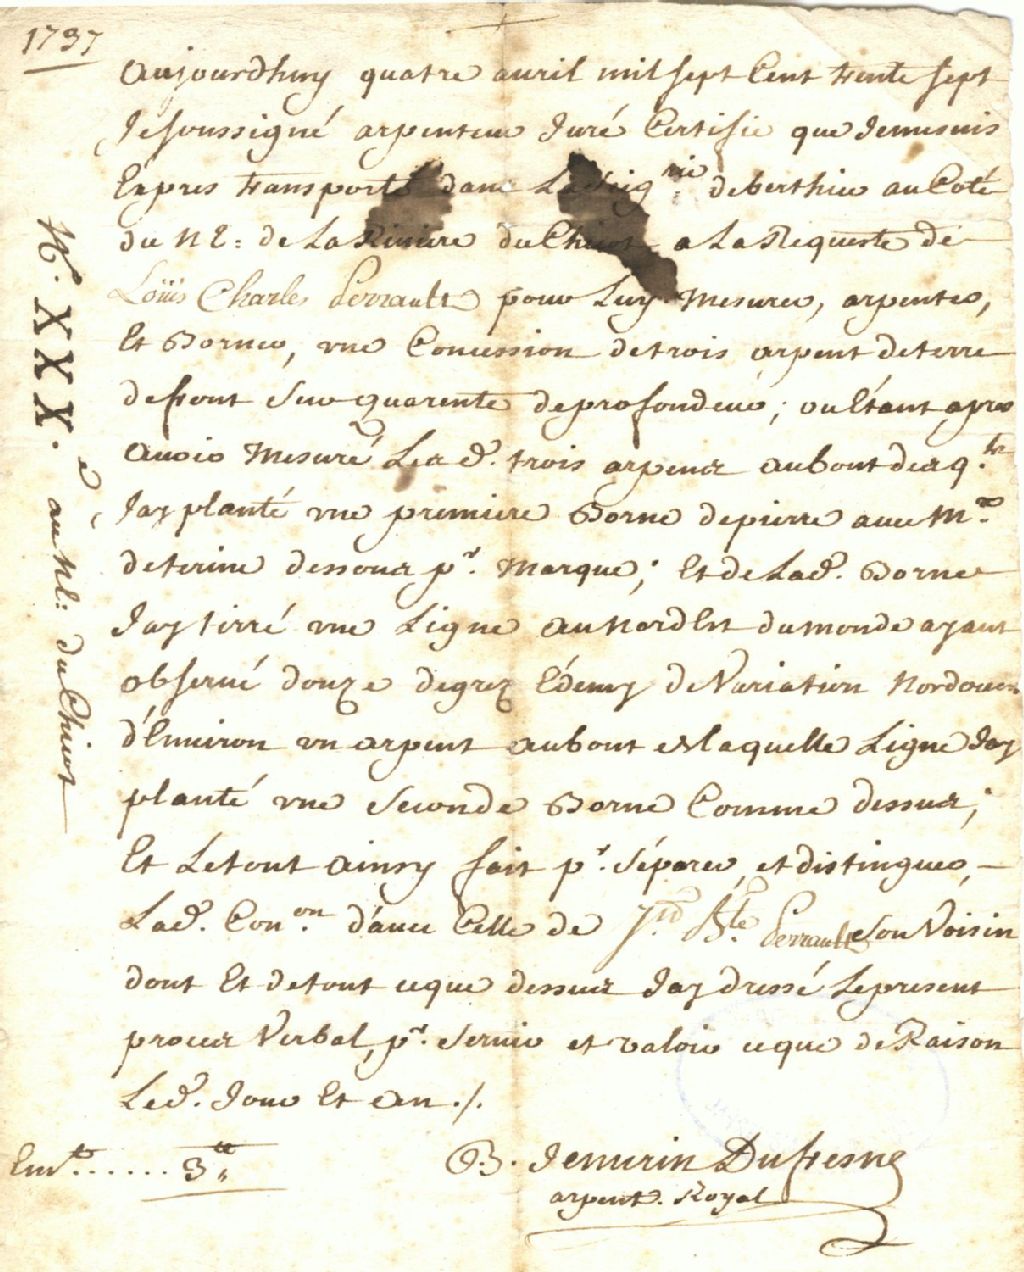 1737
Aujourdhuy quatre auril mil sept Cent trente sept
Je soussigné arpenteur Juré Certifie que Jemesuis
Expres transporté dans La Seig.rie de berthier au Coté
du N E: de La Riuiere du Chicot a La Requeste de
Loüis Charles Perrault pour Luy Mesurer, arpenter,
Et Borner, vne Concession de trois arpent de terre
de front sur quarente de profondeur; ou Etant apres
auoir Mesuré Lesd. trois arpens au bout
Jay planté vne premiere Borne de pierre auec
dessous pr. Marque; Et de Lad. Borne
Jay tirré vne Ligne au Nord Est du monde ayant
obserué douze degrez Edemy de Variation Nordouest
d'Enuiron vn arpent au bout de laquelle Ligne Jay
planté vne Seconde Borne Comme dessus;
Et Le tout ainsy fait pr. Séparer, et distinguer,
Lad. Con.on d'auec Celle de Bte Perrault son Voisin
dont Et de tout ceque dessus Jay dressé Le present
proces Verbal, pr. Seruir et valoir ceque de Raison
Led. Jour Et an ./.
3
B. Jenurin Dufresne
arpent. Royal
N. XXX. au NE: du Chicot